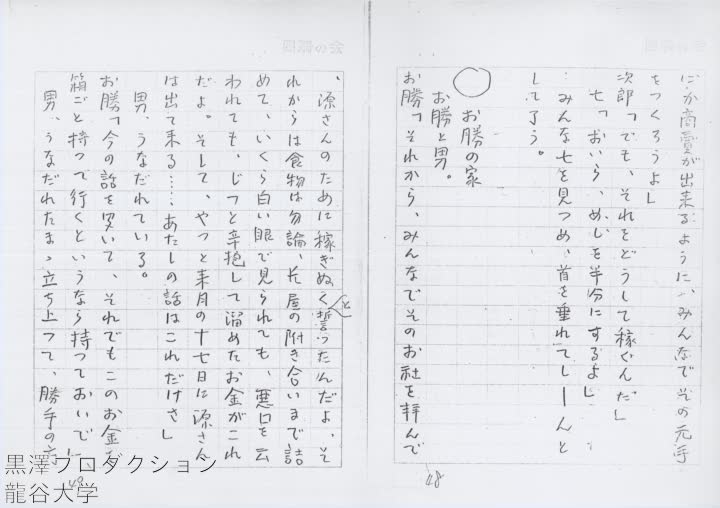 にか商賣が出来るように、みんなでその元手
をつくろうよ」
次郎「でも、それをどうして稼ぐんだ」
七「おいら、めしを半分にするよ」
みんな七を見つめ、首を垂れてしーんと
して了う。
○ お勝の家
お勝と男。
お勝「それから、みんなでそのお社を拝んで
48
、源さんのために稼ぎぬくと誓ったんだよ、そ
れからは食物は勿論、長屋の附き合いまで詰
めて、いくら白い眼で見られても、悪口を云
われても、じっと辛抱して溜めたお金がこれ
だよ。そして、やっと来月の十七日に源さん
は出て来る……あたしの話はこれだけさ」
男、うなだれている。
お勝「今の話を聞いて、それでもこのお金を
箱ごと持って行くというなら持っておいで」
男、うなだれたまゝ立ち上って、勝手の方
49
黒澤プロダクション
龍谷大学